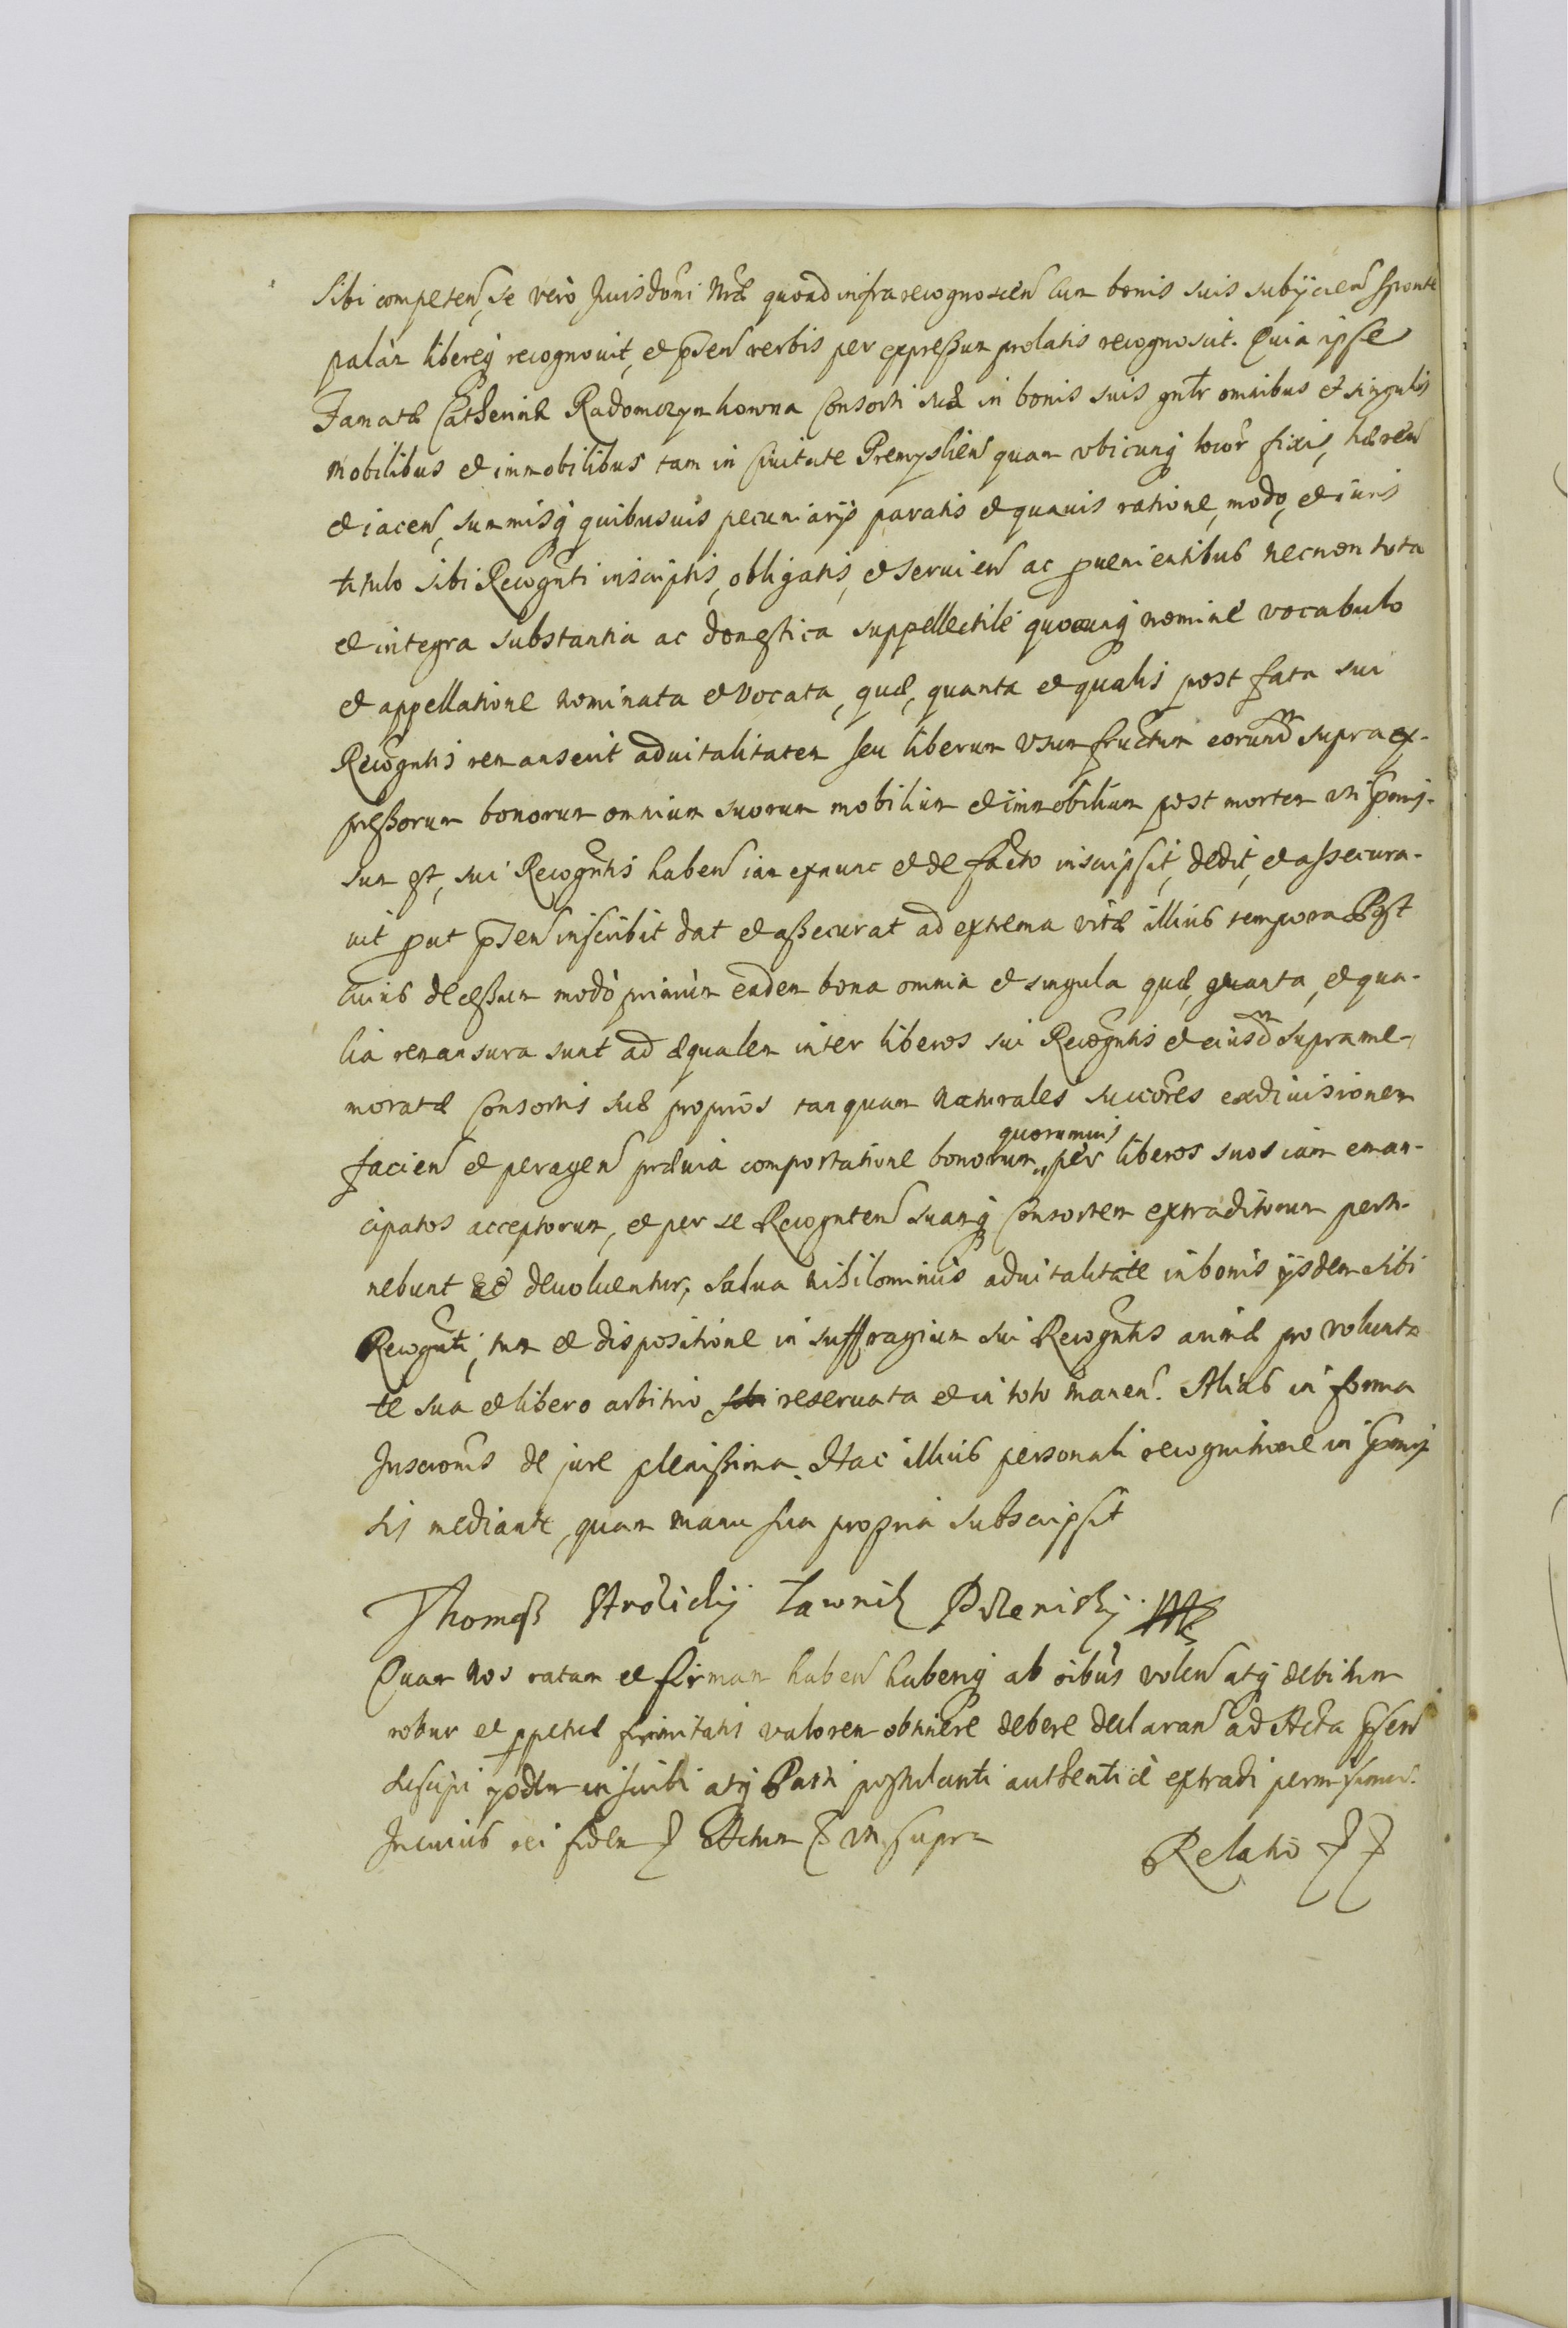 sibi competen, se verò Jurisdoni Nræ quoad infra recognoscen cum bonis suis subÿcien sponte
palàm libereq recognouit, et pñsen verbis per expressum prolatis recognoscit. Quia ipse
Famatæ Catherinæ Radomczynkowna Consorti suæ in bonis suis gnlr omnibus et singulis
mobilibus et immobilibus tam in Ciuitate Premyslien quam vbicunq locor fixis, hæren
et iacen, summisq quibusuis pecuniarijs paratis et quauis ratione, modo, et iuris
titulo sibi Recognti inscriptis, obligatis, et seruien ac puenientibus necnon tota
et integra substantia ac domestica suppellectile quocunq nomine vocabulo
et appellatione nominata et vocata, quæ, quanta et qualis post fata sui
Recogntis remanserit aduitalitatem seu liberum vsumfructum eorundm supra ex-
pressorum bonorum omnium suorum mobilium et immobilium post mortem vti pmis-
sum est, sui Recogntis haben iam exnunc et de facto inscripsit, dedit, et assecura-
uit put pñsen inscribit dat et assecurat ad extrema vitæ illius tempora Post
cuius decessum modò primùm eadem bona omnia et singula quæ, quanta, et qua-
lia remansura sunt ad æqualem inter liberos sui Recogntis et eiusdm supra me-
moratæ Consortis suæ proprios tanquam naturales succõres exdiuisionem
facien et peragen præuia comportatione bonorum quorumuis per liberos suos iam eman-
cipatos acceptorum, et per se Recognten suamq Consortem extraditorum perti-
nebunt et deuoluentur, salua nihilominus aduitalitate in bonis ÿsdem sibi
Recognti, tum et dispositione in suffragium sui Recogntis animæ pro volunta
te sua et libero arbitrio sibi reseruata et in toto manen. Alias in forma
Inscronis de jure plenissima. Hac illius personali recognitione in pmis
sis mediante, quam manu sua propria subscripsit
Thomas Strozicky Lawnik Przemisky mp
Quam nos ratam et firmam haben haberiq ab oibus volen atq debitum
robur et ppetuæ firmitatis valorem obtinere debere declaran ad Acta pñsen
suscipi ÿsdem inscribi atq Parti postulanti authenticè extradi permisimus.
In cuius rei fidem Actum vt supra
Relatio